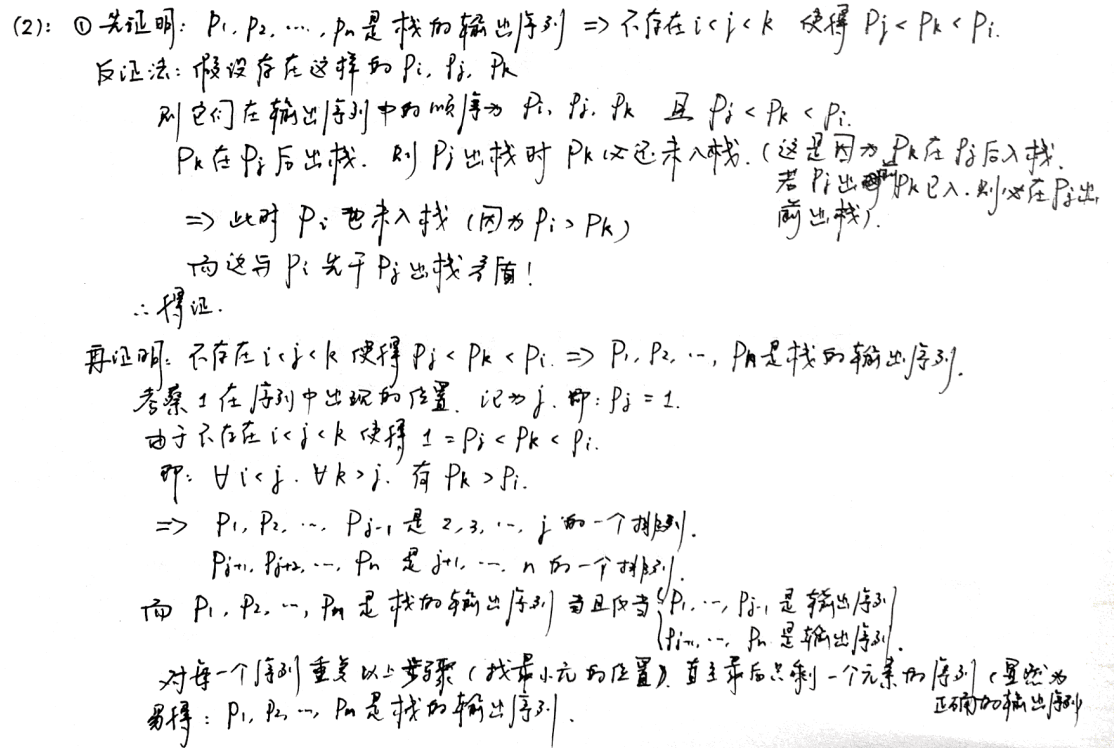 (2): ① 先证明: P₁, P₂, ⋯, Pₙ 是栈的输出序列 ⇒ 不存在 i<j<k 使得 Pⱼ < Pₖ < Pᵢ.
反证法: 假设存在这样的 Pᵢ, Pⱼ, Pₖ
则它们在输出序列中的顺序为 Pᵢ, Pⱼ, Pₖ 且 Pⱼ < Pₖ < Pᵢ.
Pₖ 在 Pⱼ 后出栈. 则 Pⱼ 出栈时 Pₖ 必还未入栈. (这是因为 Pₖ 在 Pⱼ 后入栈.
若 Pⱼ 出前 Pₖ 已入. 则必在 Pⱼ 出
前出栈).
⇒ 此时 Pᵢ 也未入栈 (因为 Pᵢ > Pₖ)
而这与 Pᵢ 先于 Pⱼ 出栈矛盾!
∴ 得证.
再证明: 不存在 i<j<k 使得 Pⱼ < Pₖ < Pᵢ. ⇒ P₁, P₂, ⋯, Pₙ 是栈的输出序列.
考察 1 在序列中出现的位置. 记为 j. 即: Pⱼ = 1.
由于不存在 i<j<k 使得 1 = Pⱼ < Pₖ < Pᵢ.
即: ∀ i<j. ∀ k>j. 有 Pₖ > Pᵢ.
⇒ P₁, P₂, ⋯, Pⱼ₋₁ 是 2, 3, ⋯, j 的一个排列.
Pⱼ₊₁, Pⱼ₊₂, ⋯, Pₙ 是 j+1, ⋯, n 的一个排列.
而 P₁, P₂, ⋯, Pₙ 是栈的输出序列 当且仅当 { P₁, ⋯, Pⱼ₋₁ 是输出序列
Pⱼ₊₁, ⋯, Pₙ 是输出序列.
对每一个序列重复以上步骤 (找最小元的位置). 直至最后只剩一个元素的序列 (显然为
正确的输出序列
易得: P₁, P₂, ⋯, Pₙ 是栈的输出序列.